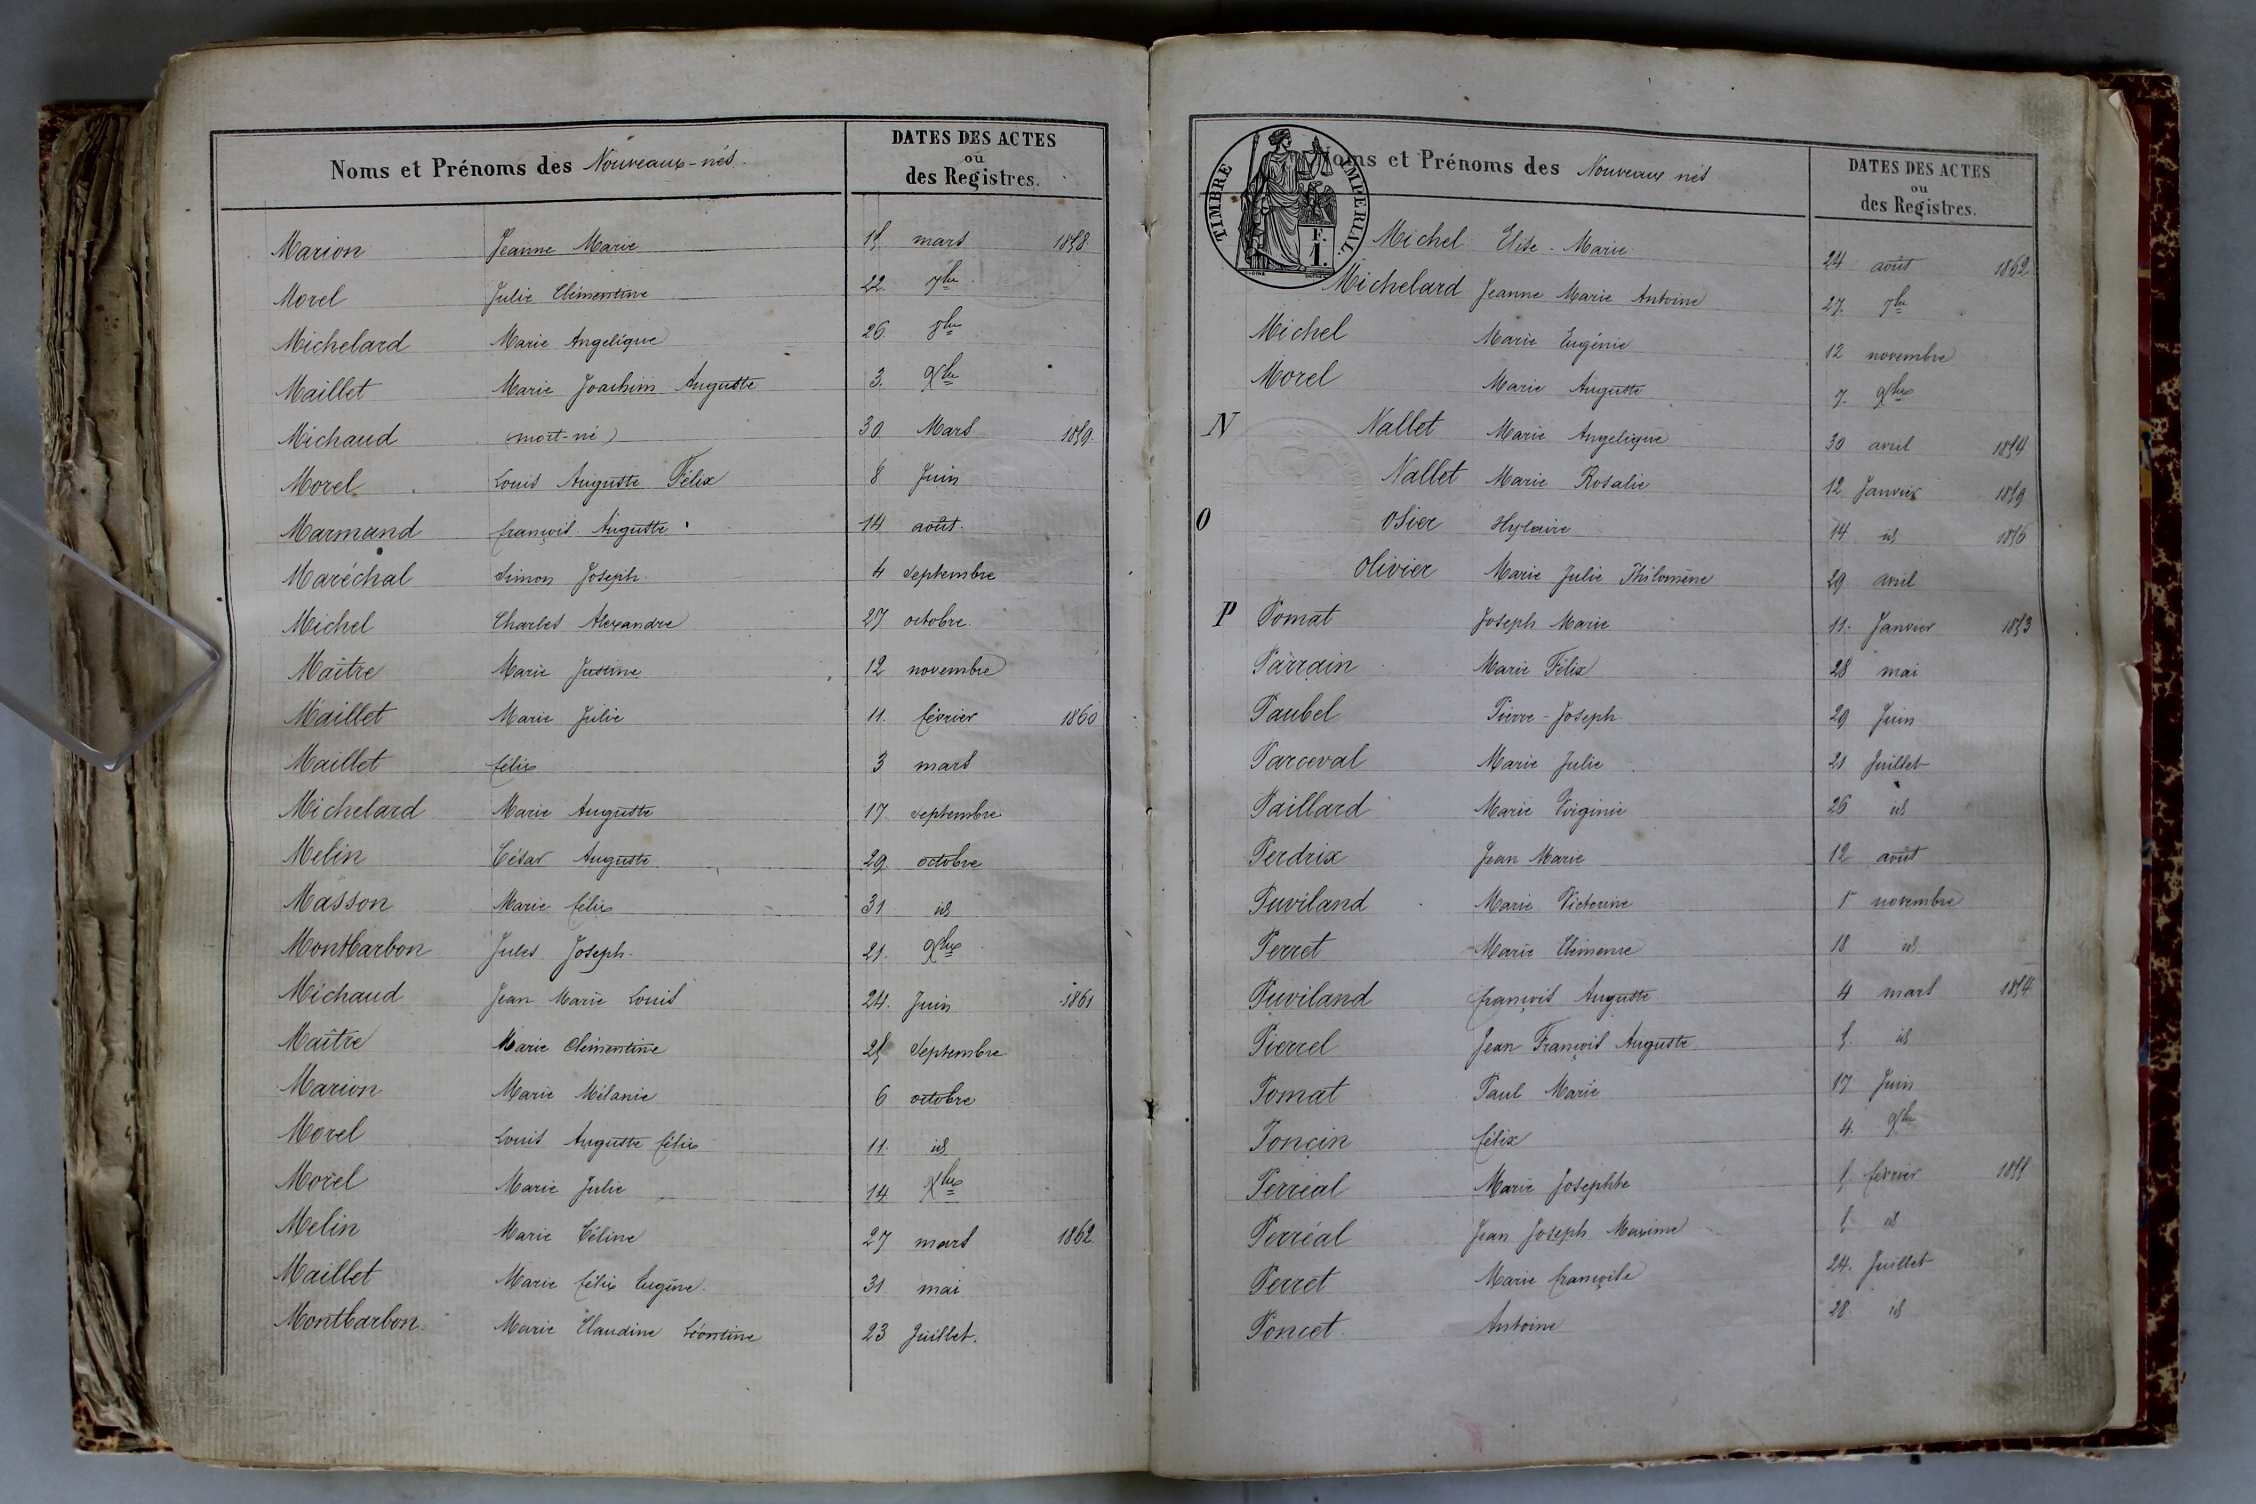 Noms et Prénoms des Nouveaux-nés.
DATES DES ACTES
ou
des Registres.
Marion Jeanne Marie 15. mars 1858
Morel Julie Clémentine 22. 7bre
Michelard Marie Angelique 26. 8bre
Maillet Marie Joachim Auguste 3. Xbre
Michaud (mort-né) 30 Mars 1859.
Morel Louis Auguste Félix 8 Juin
Marmand françois Auguste 14 août.
Maréchal Simon Joseph 4 Septembre
Michel Charles Alexandre 27 octobre.
Maître Marie Justine 12 novembre
Maillet Marie Julie 11. février 1860
Maillet félix 3 mars
Michelard Marie Auguste 17 septembre
Melin César Auguste 29 octobre
Masson Marie félix 31 id
Montbarbon Jules Joseph 21. Xbre
Michaud Jean Marie Louis 24. Juin 1861
Maître Marie Clémentine 25 Septembre
Marion Marie Mélanie 6 octobre
Morel Louis Auguste félix 11. id
Morel Marie Julie 14 Xbre
Melin Marie Céline 27 mars 1862
Maillet Marie félix Eugène 31 mai
Montbarbon Marie Claudine Léontine 23 Juillet.
TIMBRE IMPERIAL.
F.
1.
Noms et Prénoms des Nouveaux nés
DATES DES ACTES
ou
des Registres.
Michel Elise-Marie 24 août 1862
Michelard Jeanne Marie Antoine 27. 7bre
Michel Marie Eugénie 12 novembre
Morel Marie Auguste 7. Xbre
N Nallet Marie Angelique 30 avril 1854
Nallet Marie Rosalie 12 Janvier 1859
O Osier Hylaire 14 id 1856
Olivier Marie Julie Philomène 29 avril
P Pomat Joseph Marie 11. Janvier 1853
Parrain Marie Félix 28 mai
Paubel Pierre-Joseph 29 Juin
Parceval Marie Julie 21 Juillet
Paillard Marie Virginie 26 id
Perdrix Jean Marie 12 août
Puviland Marie Victorine novembre
Perret Marie Clémence 18 id
Puviland françois Auguste 4 mars 1854
Pierrel Jean François Auguste 5. id
Pomat Paul Marie 17 Juin
Poncin félix 4. Xbre
Perréal Marie Josephte 5. février 1855
Perréal Jean Joseph Maxime 5 id
Perret Marie françoise 24. Juillet
Poncet Antoine 28. id